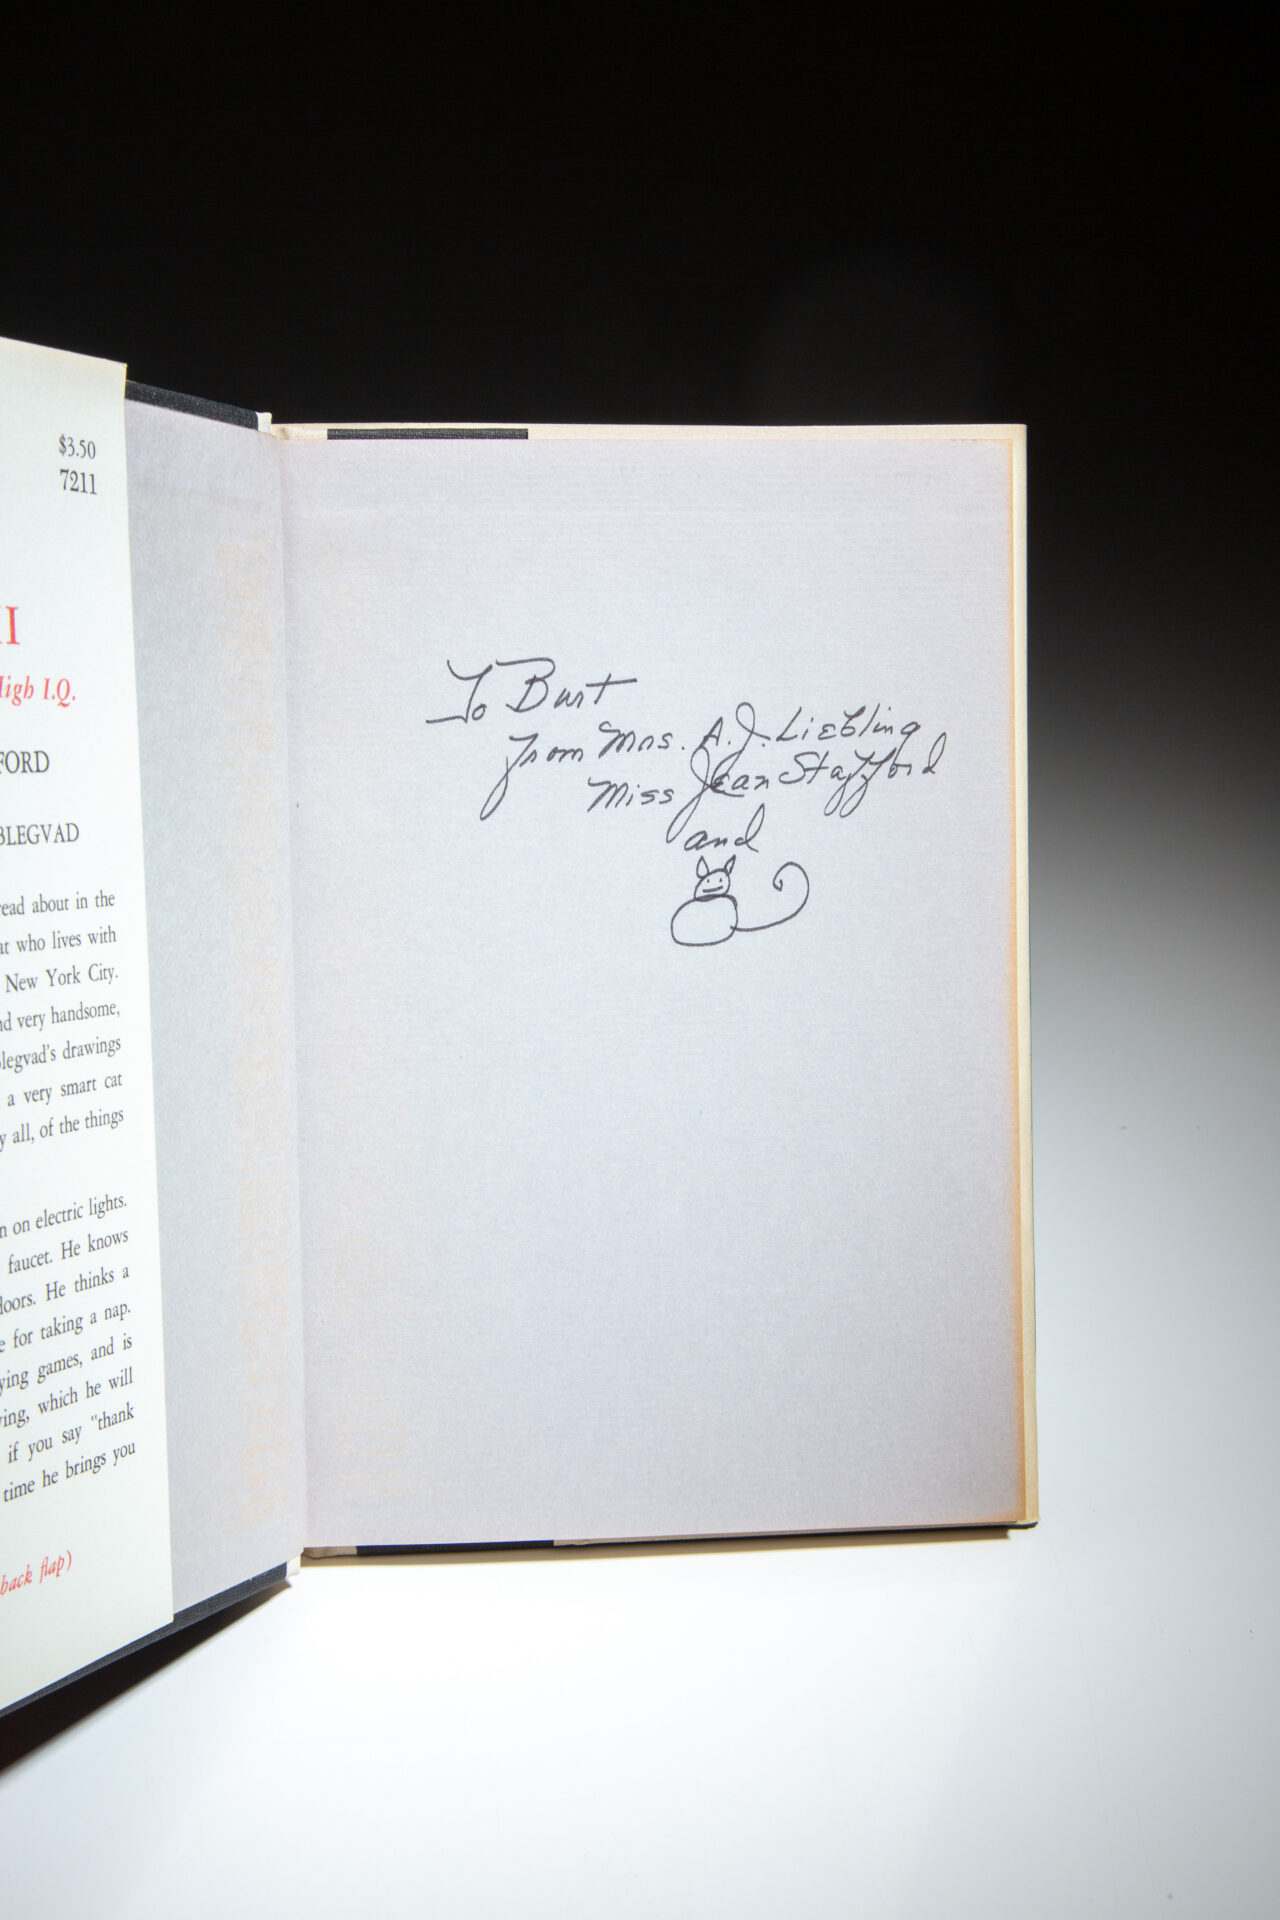 $3.50
7211
II
High I.Q.
FORD
BLEGVAD
read about in the
at who lives with
New York City.
nd very handsome,
Blegvad's drawings
a very smart cat
y all, of the things
n on electric lights.
faucet. He knows
doors. He thinks a
e for taking a nap.
ying games, and is
ving, which he will
if you say "thank
time he brings you
back flap)
To Burt
from Mrs. A. J. Liebling
Miss Jean Stafford
and